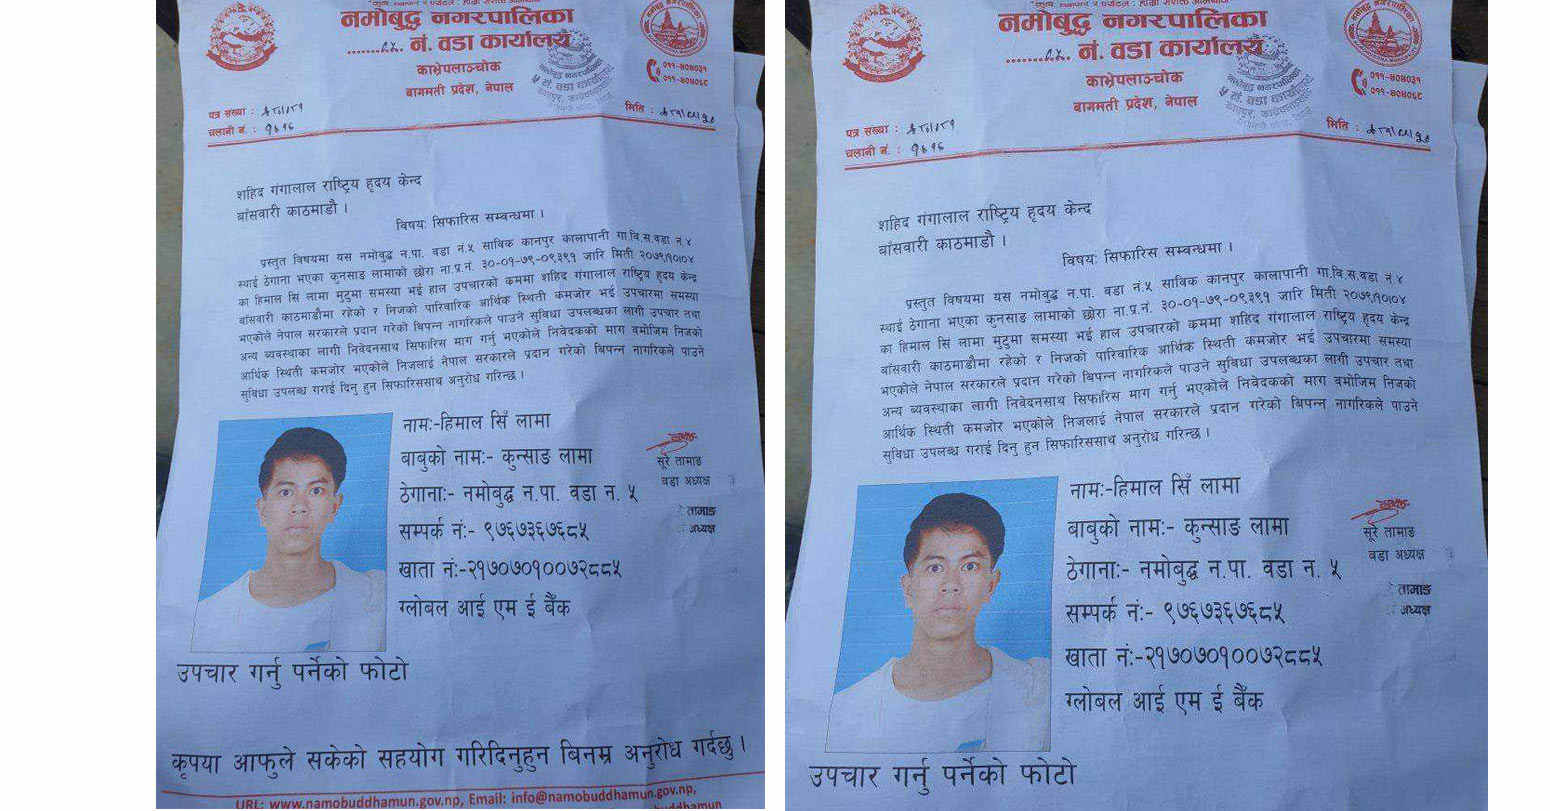 नमोबुद्ध नगरपालिका
नं. वडा कार्यालय
काभ्रेपलाञ्चोक
बागमती प्रदेश, नेपाल
०११-४०४०३१
०११-४०४०६८
पत्र संख्या :
मिति :
चलानी नं. :
शहिद गंगालाल राष्ट्रिय हृदय केन्द
बांसवारी काठमाडौ ।
विषय: सिफारिस सम्बन्धमा ।
प्रस्तुत विषयमा यस नमोबुद्ध न.पा. वडा नं.५ साविक कानपुर कालापानी गा.वि.स.वडा नं.४
स्थाई ठेगाना भएका कुनसाङ लामाको छोरा ना.प्र.नं. ३०-०१-७९-०९३९१ जारि मिती २०७९।१०।०४
का हिमाल सि लामा मुटुमा समस्या भई हाल उपचारको कममा शहिद गंगालाल राष्ट्रिय हृदय केन्द्र
बांसवारी काठमाडौमा रहेको र निजको पारिवारिक आर्थिक स्थिती कमजोर भई उपचारमा समस्या
भएकोले नेपाल सरकारले प्रदान गरेको बिपन्न नागरिकले पाउने सुविधा उपलब्धका लागी उपचार तथा
अन्य ब्यवस्थाका लागी निवेदनसाथ सिफारिस माग गर्नु भएकोले निवेदकको माग वमोजिम निजको
आर्थिक स्थिती कमजोर भएकोले निजलाई नेपाल सरकारले प्रदान गरेको बिपन्न नागरिकले पाउने
सुविधा उपलब्ध गराई दिनु हुन सिफारिससाथ अनुरोध गरिन्छ ।
नामः-हिमाल सिँ लामा
बाबुको नामः- कुन्साङ लामा
ठेगानाः- नमोबुद्ध न.पा. वडा न. ५
सम्पर्क नंः- ९७६७३६७६८५
खाता नंः-२१७०७०१००७२८८५
ग्लोबल आई एम ई बैँक
सूरे तामाङ
वडा अध्यक्ष
तामाङ
अध्यक्ष
उपचार गर्नु पर्नेको फोटो
कृपया आफुले सकेको सहयोग गरिदिनुहुन बिनम्र अनुरोध गर्दछु ।
URL: www.namobuddhamun.gov.np, Email: info@namobuddhamun.gov.np,
नमोबुद्ध नगरपालिका
नं. वडा कार्यालय
काभ्रेपलाञ्चोक
बागमती प्रदेश, नेपाल
०११-४०४०३१
०११-४०४०६८
पत्र संख्या :
मिति :
चलानी नं. :
शहिद गंगालाल राष्ट्रिय हृदय केन्द
बांसवारी काठमाडौ ।
विषय: सिफारिस सम्बन्धमा ।
प्रस्तुत विषयमा यस नमोबुद्ध न.पा. वडा नं.५ साविक कानपुर कालापानी गा.वि.स.वडा नं.४
स्थाई ठेगाना भएका कुनसाङ लामाको छोरा ना.प्र.नं. ३०-०१-७९-०९३९१ जारि मिती २०७९।१०।०४
का हिमाल सि लामा मुटुमा समस्या भई हाल उपचारको कममा शहिद गंगालाल राष्ट्रिय हृदय केन्द्र
बांसवारी काठमाडौमा रहेको र निजको पारिवारिक आर्थिक स्थिती कमजोर भई उपचारमा समस्या
भएकोले नेपाल सरकारले प्रदान गरेको बिपन्न नागरिकले पाउने सुविधा उपलब्धका लागी उपचार तथा
अन्य ब्यवस्थाका लागी निवेदनसाथ सिफारिस माग गर्नु भएकोले निवेदकको माग वमोजिम निजको
आर्थिक स्थिती कमजोर भएकोले निजलाई नेपाल सरकारले प्रदान गरेको बिपन्न नागरिकले पाउने
सुविधा उपलब्ध गराई दिनु हुन सिफारिससाथ अनुरोध गरिन्छ ।
नामः-हिमाल सिँ लामा
बाबुको नामः- कुन्साङ लामा
ठेगानाः- नमोबुद्ध न.पा. वडा न. ५
सम्पर्क नंः- ९७६७३६७६८५
खाता नंः-२१७०७०१००७२८८५
ग्लोबल आई एम ई बैँक
सूरे तामाङ
वडा अध्यक्ष
तामाङ
अध्यक्ष
उपचार गर्नु पर्नेको फोटो